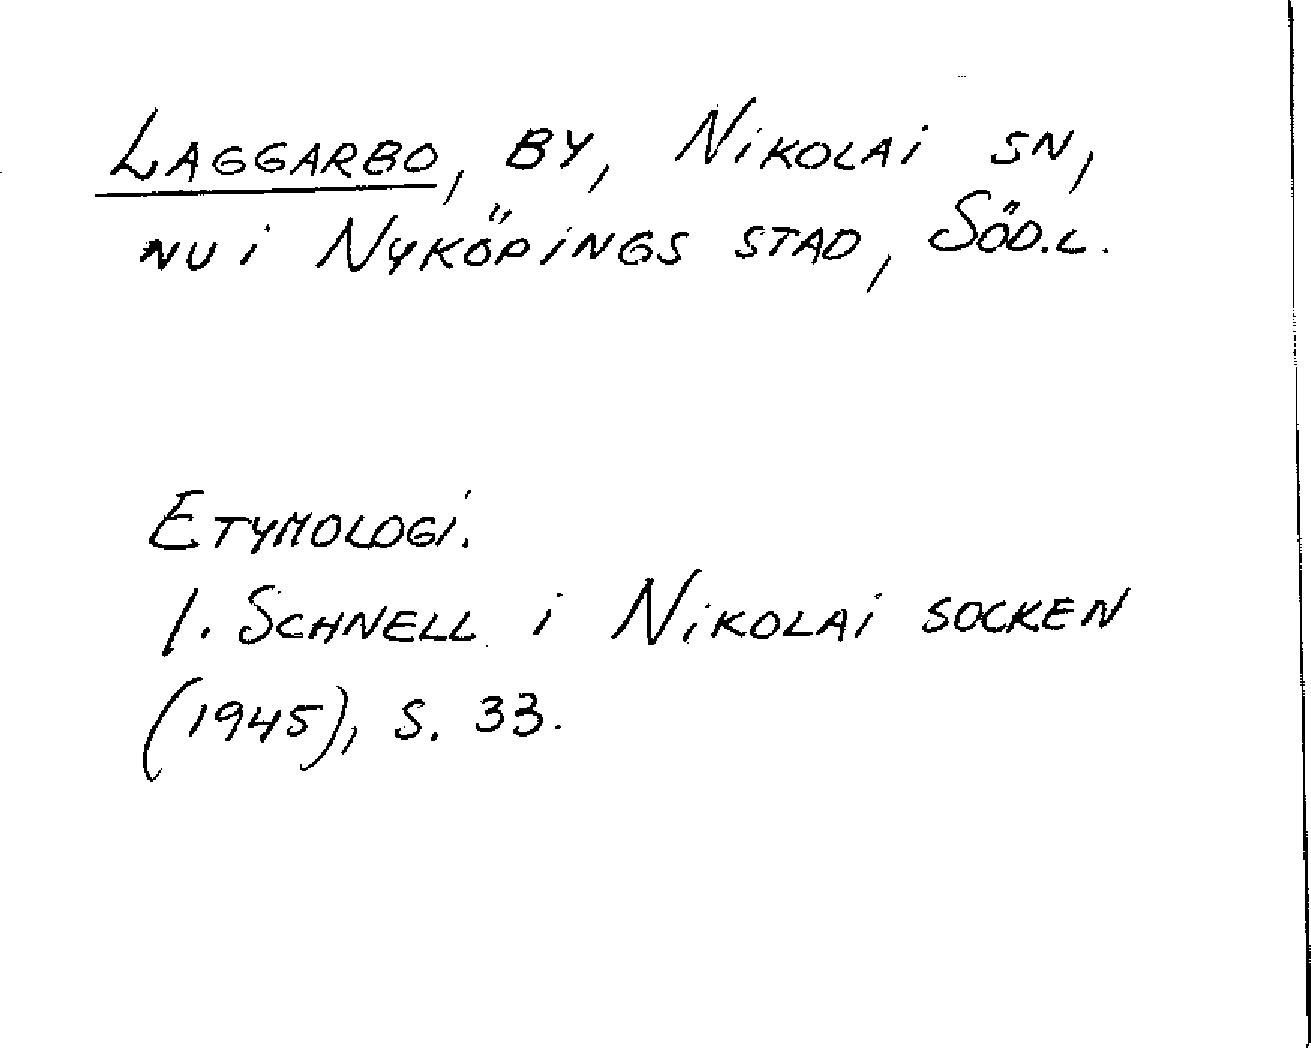 LAGGARBO, BY, NIKOLAI SN,
NU I NYKÖPINGS STAD, SÖD.L.
ETYMOLOGI.
I. SCHNELL I NIKOLAI SOCKEN
(1945), S. 33.